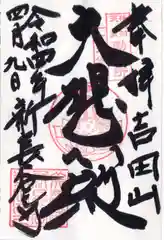 奉拝 吉田山
大悲殿
令和四年 新長谷寺
四月九日